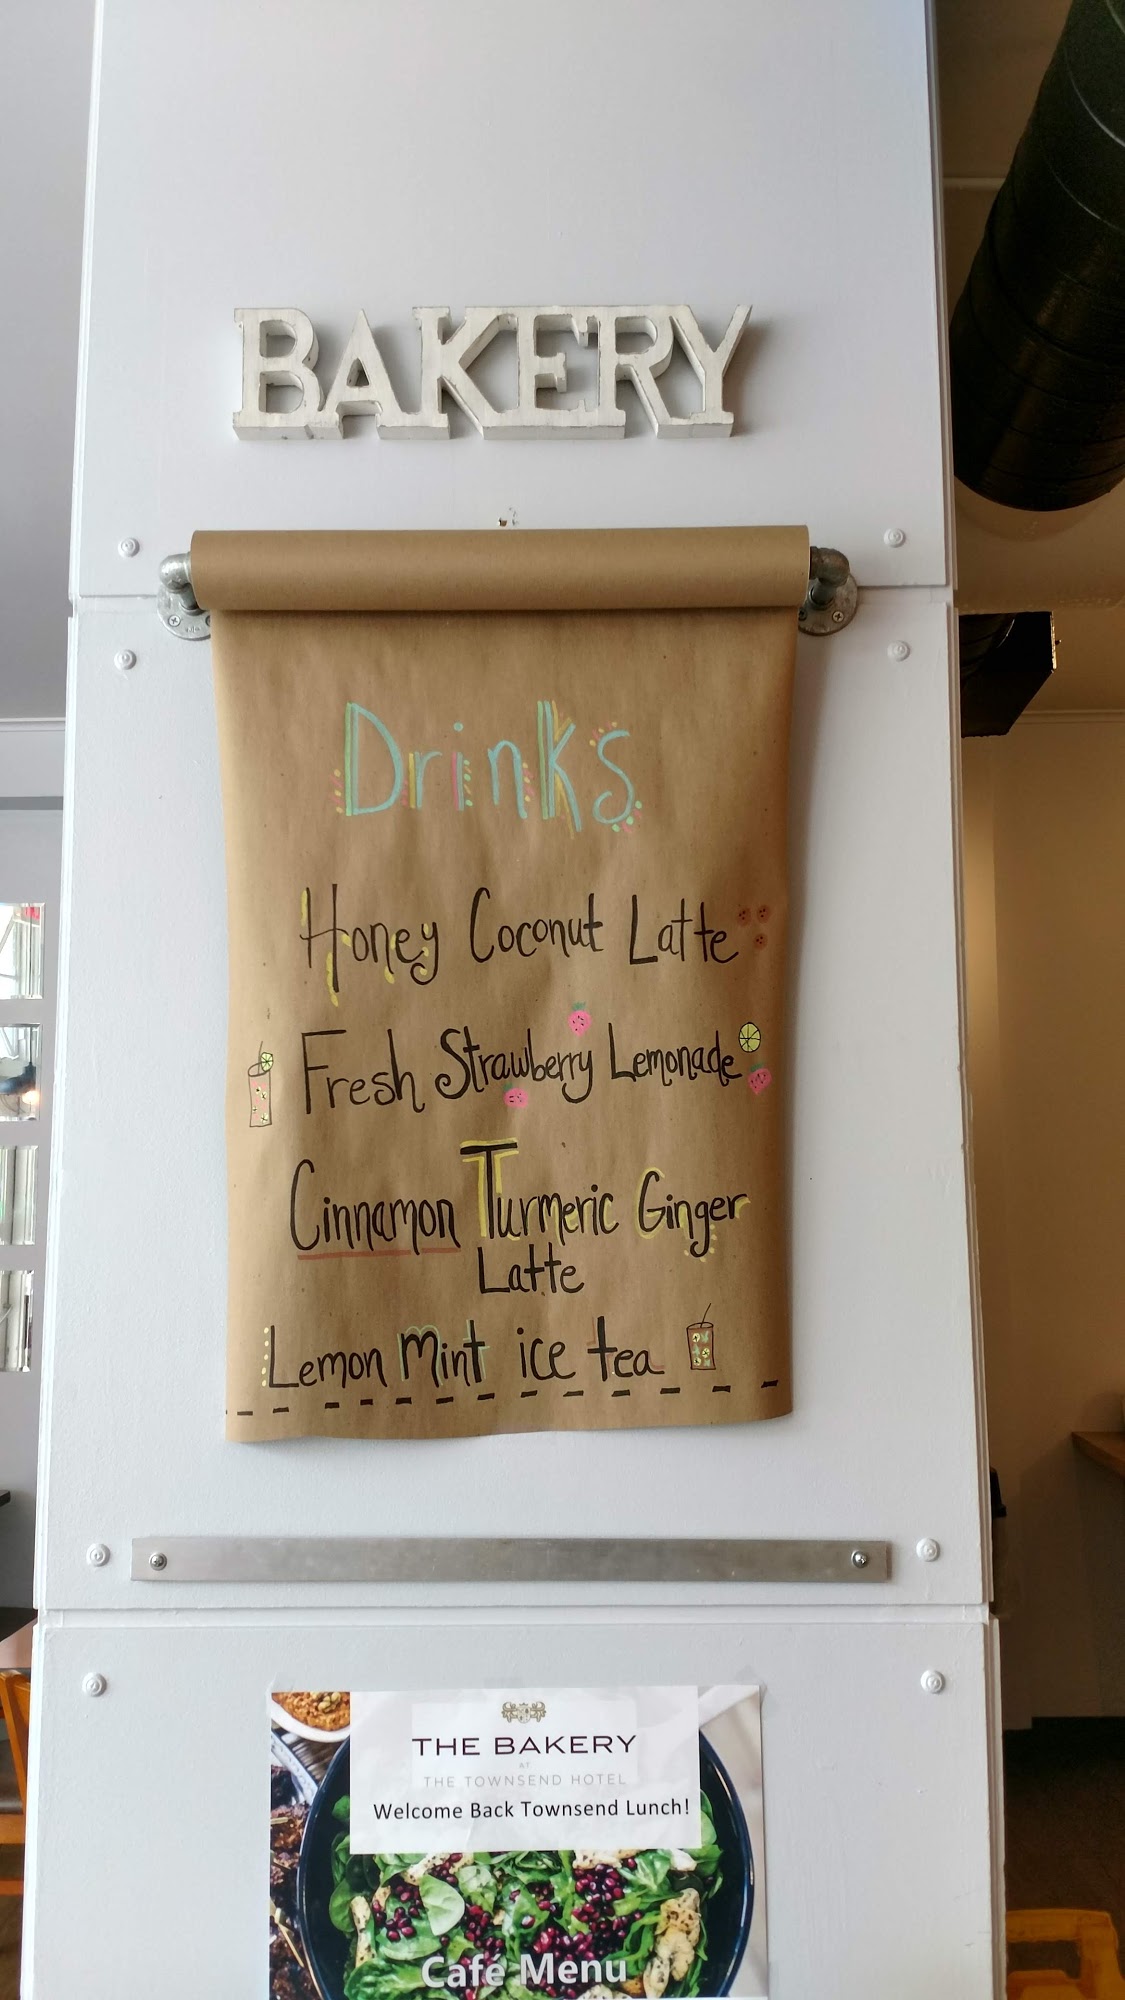 BAKERY
Drinks
Honey Coconut Latte
Fresh Strawberry Lemonade
Cinnamon Turmeric Ginger
Latte
Lemon Mint ice tea
THE BAKERY
AT
THE TOWNSEND HOTEL
Welcome Back Townsend Lunch!
Café Menu